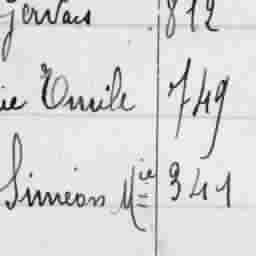 Gervais 812
ie Emile 749
Siméon Mie 341